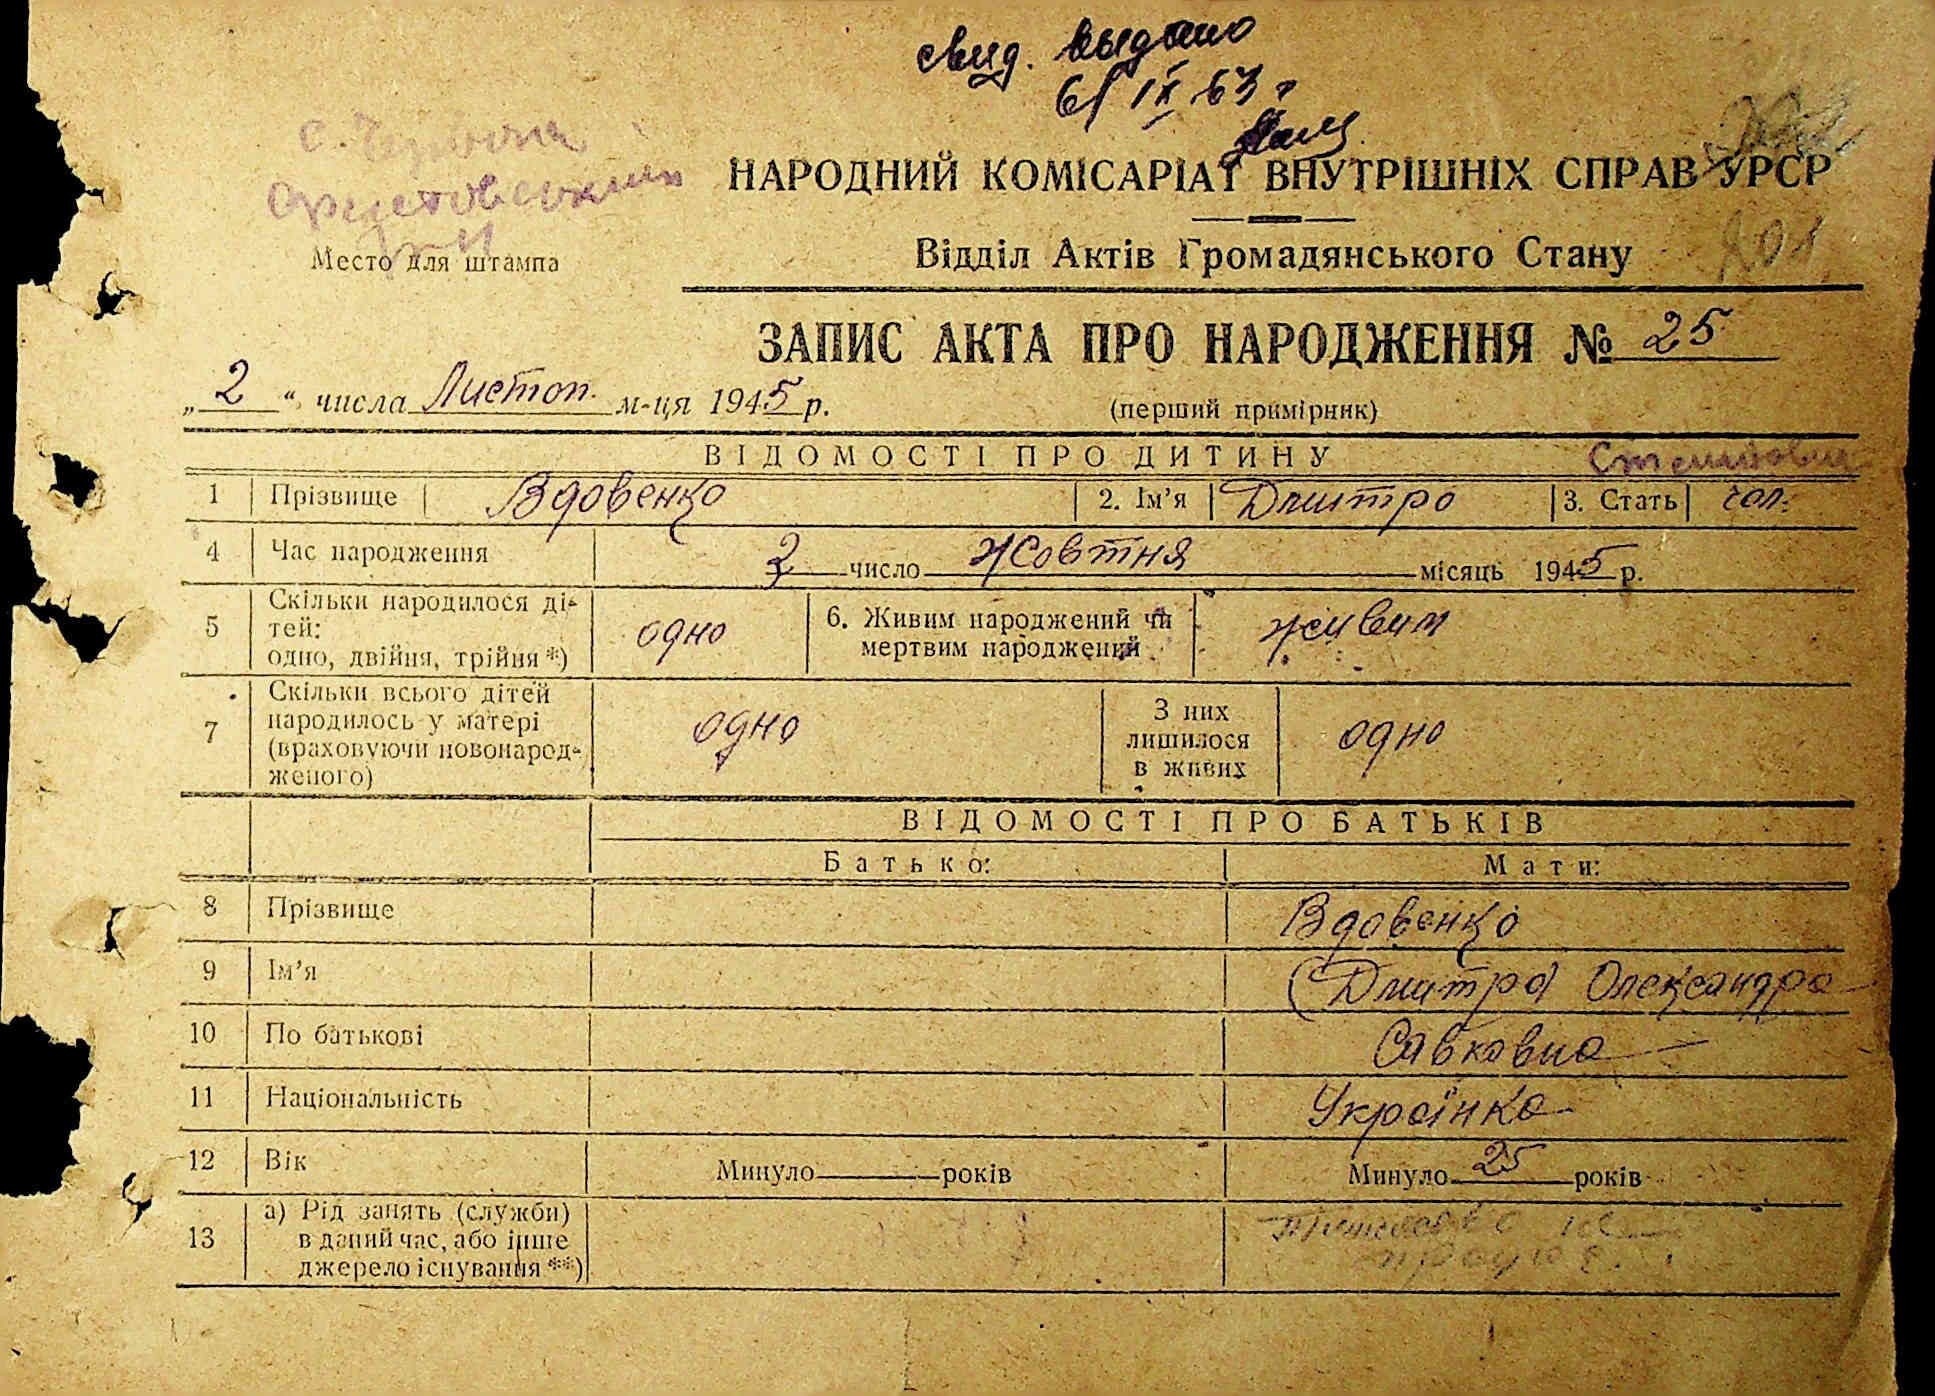 свид. выдано
6/IX 63 г.
с. Червона
НАРОДНИЙ КОМІСАРІАТ ВНУТРІШНІХ СПРАВ УРСР
Место для штампа
Відділ Актів Громадянського Стану
201
ЗАПИС АКТА ПРО НАРОДЖЕННЯ № 25
„2“ числа Листоп. м-ця 1945 р.
(перший примірник)
ВІДОМОСТІ ПРО ДИТИНУ
1 Прізвище Вдовенко 2. Ім’я Дмитро 3. Стать чол.
4 Час народження 2 число жовтня місяць 1945 р.
5 Скільки народилося ді-
тей:
одно, двійня, трійня *) одно 6. Живим народжений чи
мертвим народжений живим
7 Скільки всього дітей
народилось у матері
(враховуючи новонарод-
женого) одно З них
лишилося
в живих одно
ВІДОМОСТІ ПРО БАТЬКІВ
Батько: Мати:
8 Прізвище Вдовенко
9 Ім’я (Дмитро) Олександра
10 По батькові Савковна
11 Національність Українка
12 Вік Минуло років Минуло 25 років
13 а) Рід занять (служби)
в даний час, або інше
джерело існування **)